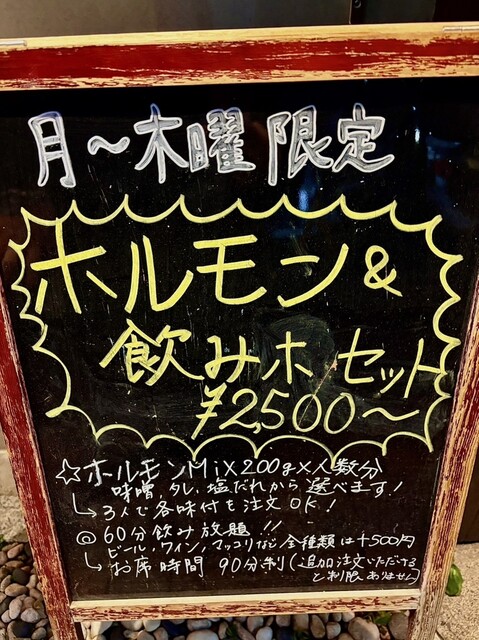 月～木曜限定
ホルモン&
飲みホ セット
¥2,500～
☆ホールモンMix200g×人数分
味噌 タレ、塩だれから選べます!
↳3人で各味付を注文OK!
◎60分飲み放題!!
ビール、ワイン、マッコリなど全種類は+500円
↳お席時間 90分制(追加注文いただける
と制限ありません)